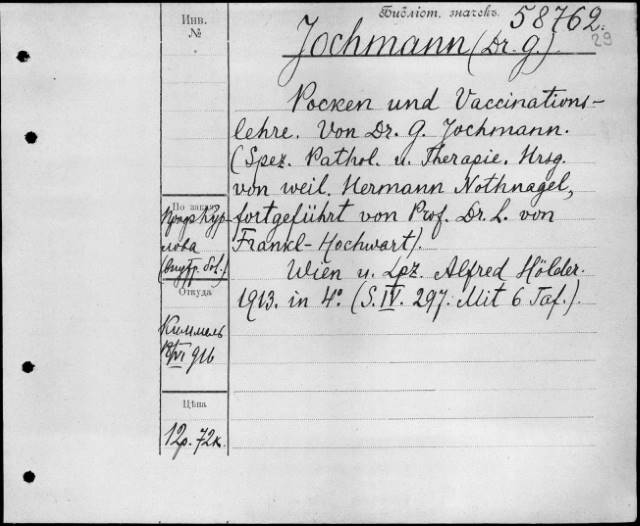 Инв.
№
Библіот. значекъ 58762.
29
Jochmann (Dr. G.)
Pocken und Vaccinations-
lehre. Von Dr. G. Jochmann.
(Spez. Pathol. u. Therapie. Hrsg.
von weil. Hermann Nothnagel,
fortgeführt von Prof. Dr. L. von
Frankl-Hochwart).
Wien u. Lpz. Alfred Hölder.
1913. in 4º. (S. IV. 297. Mit 6 Taf.).
По заказу
Проф. Кур-
лова
(внутр. бол.)
Откуда
Киммель
VI 916
Цѣна
12р. 72к.